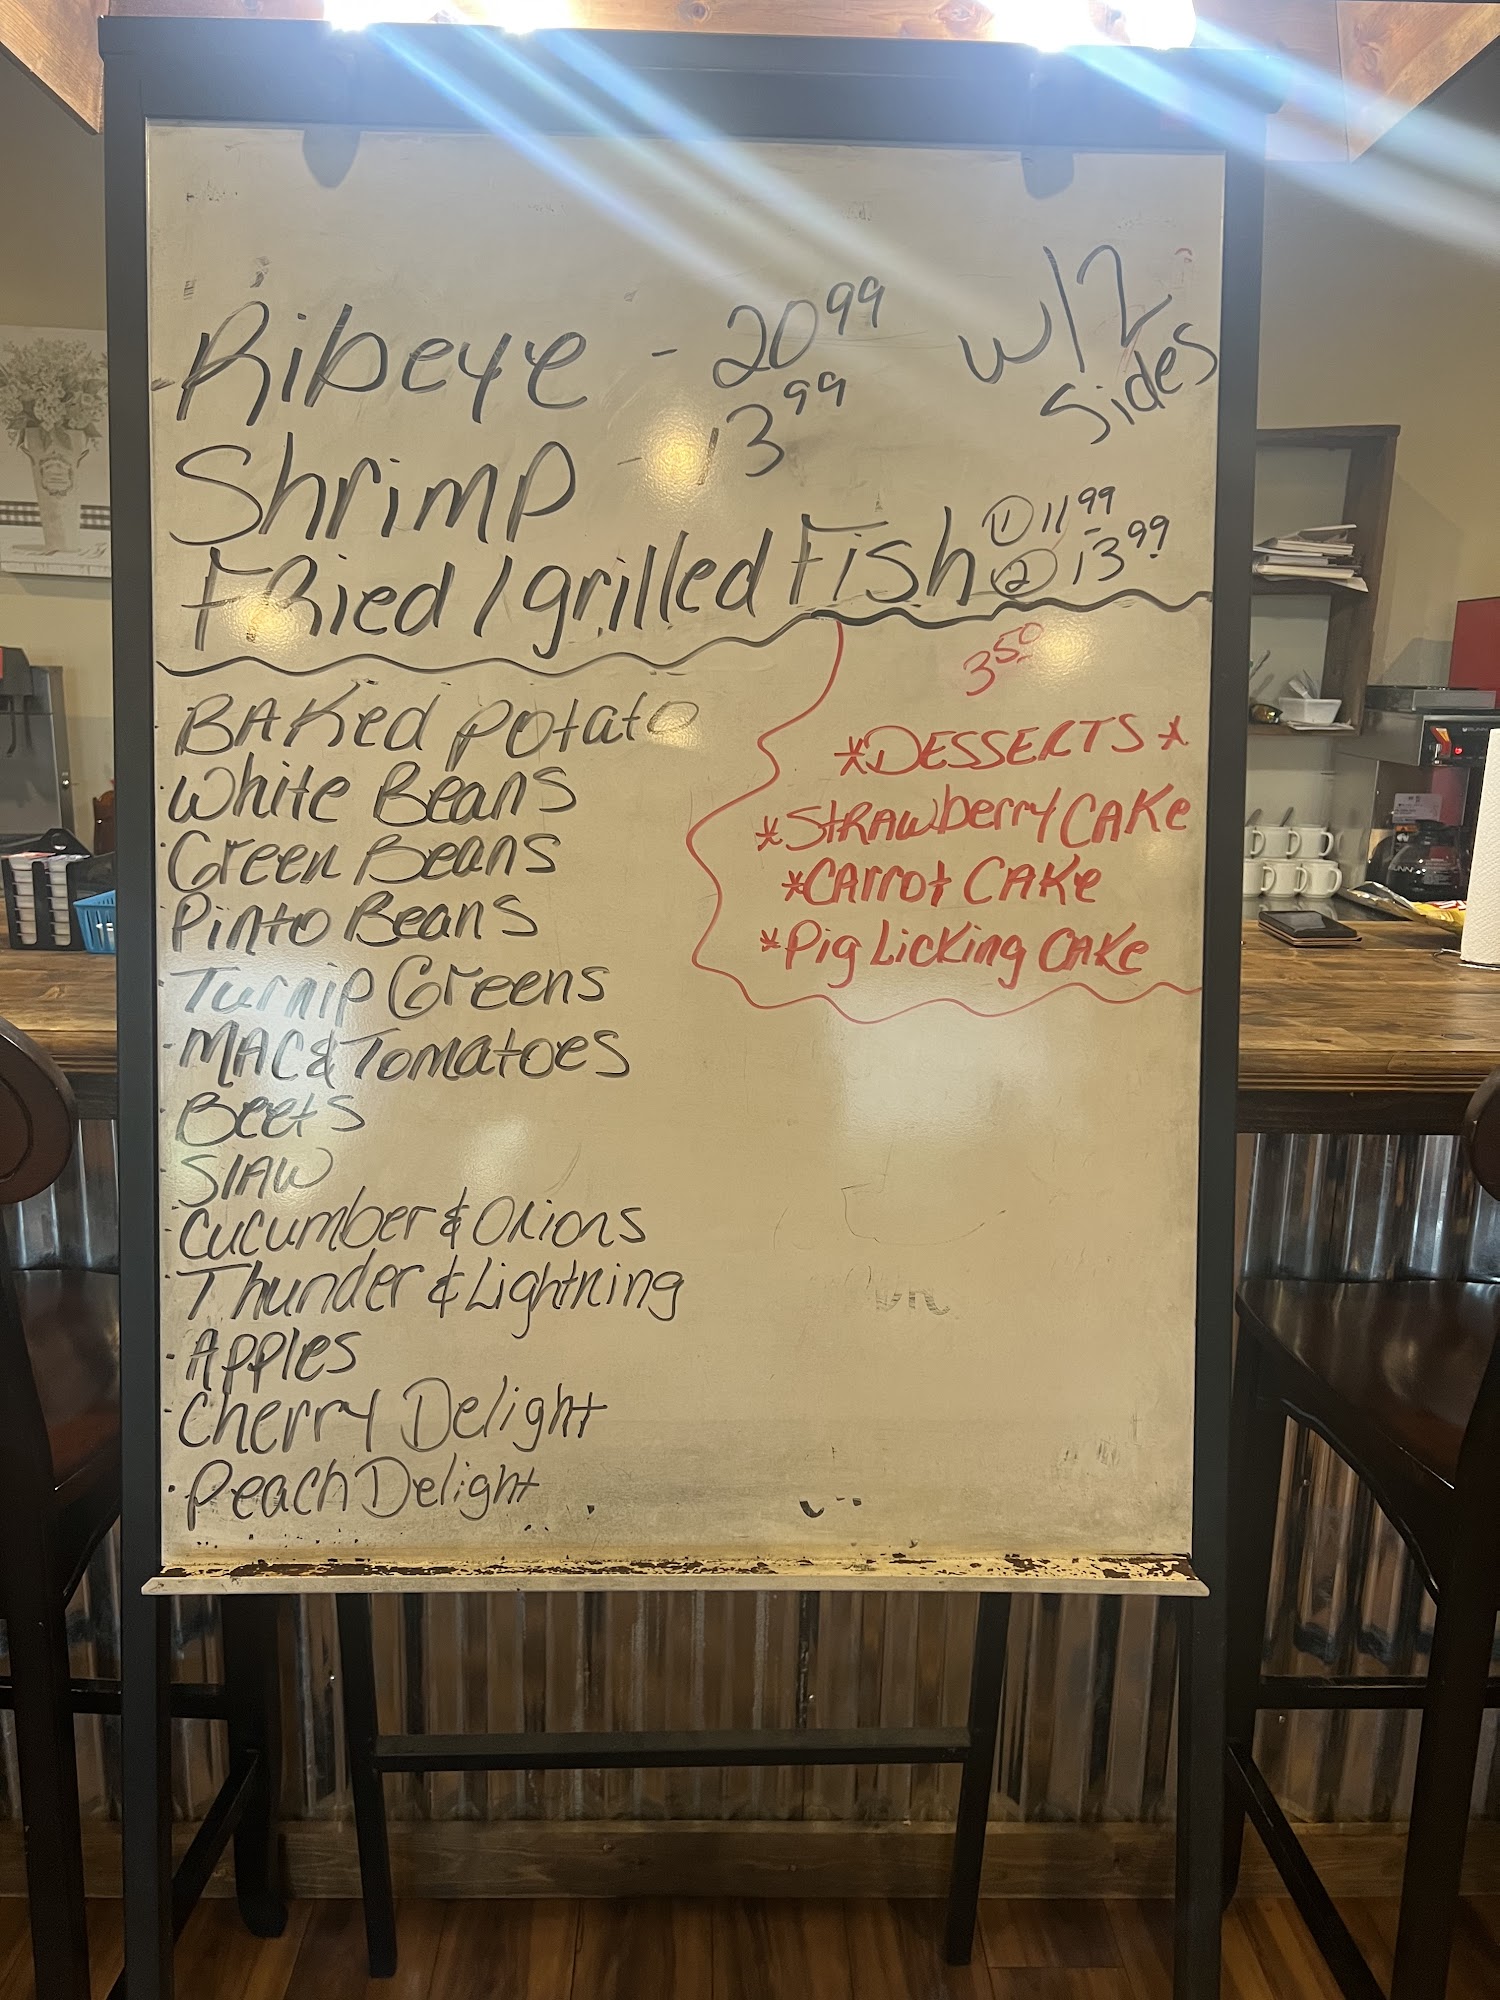 Ribeye - 20 99 w/2 Sides
Shrimp - 13 99
Fried / grilled Fish ① 11 99
② 13 99
BAKed potato
White Beans
Green Beans
Pinto Beans
Turnip Greens
MAC & Tomatoes
Beets
SlAW
Cucumber & Onions
Thunder & Lightning
Apples
Cherry Delight
Peach Delight
3 50
*DESSERTS*
*STRAWberry CAKe
*CArrot CAKe
*Pig Licking CAKe